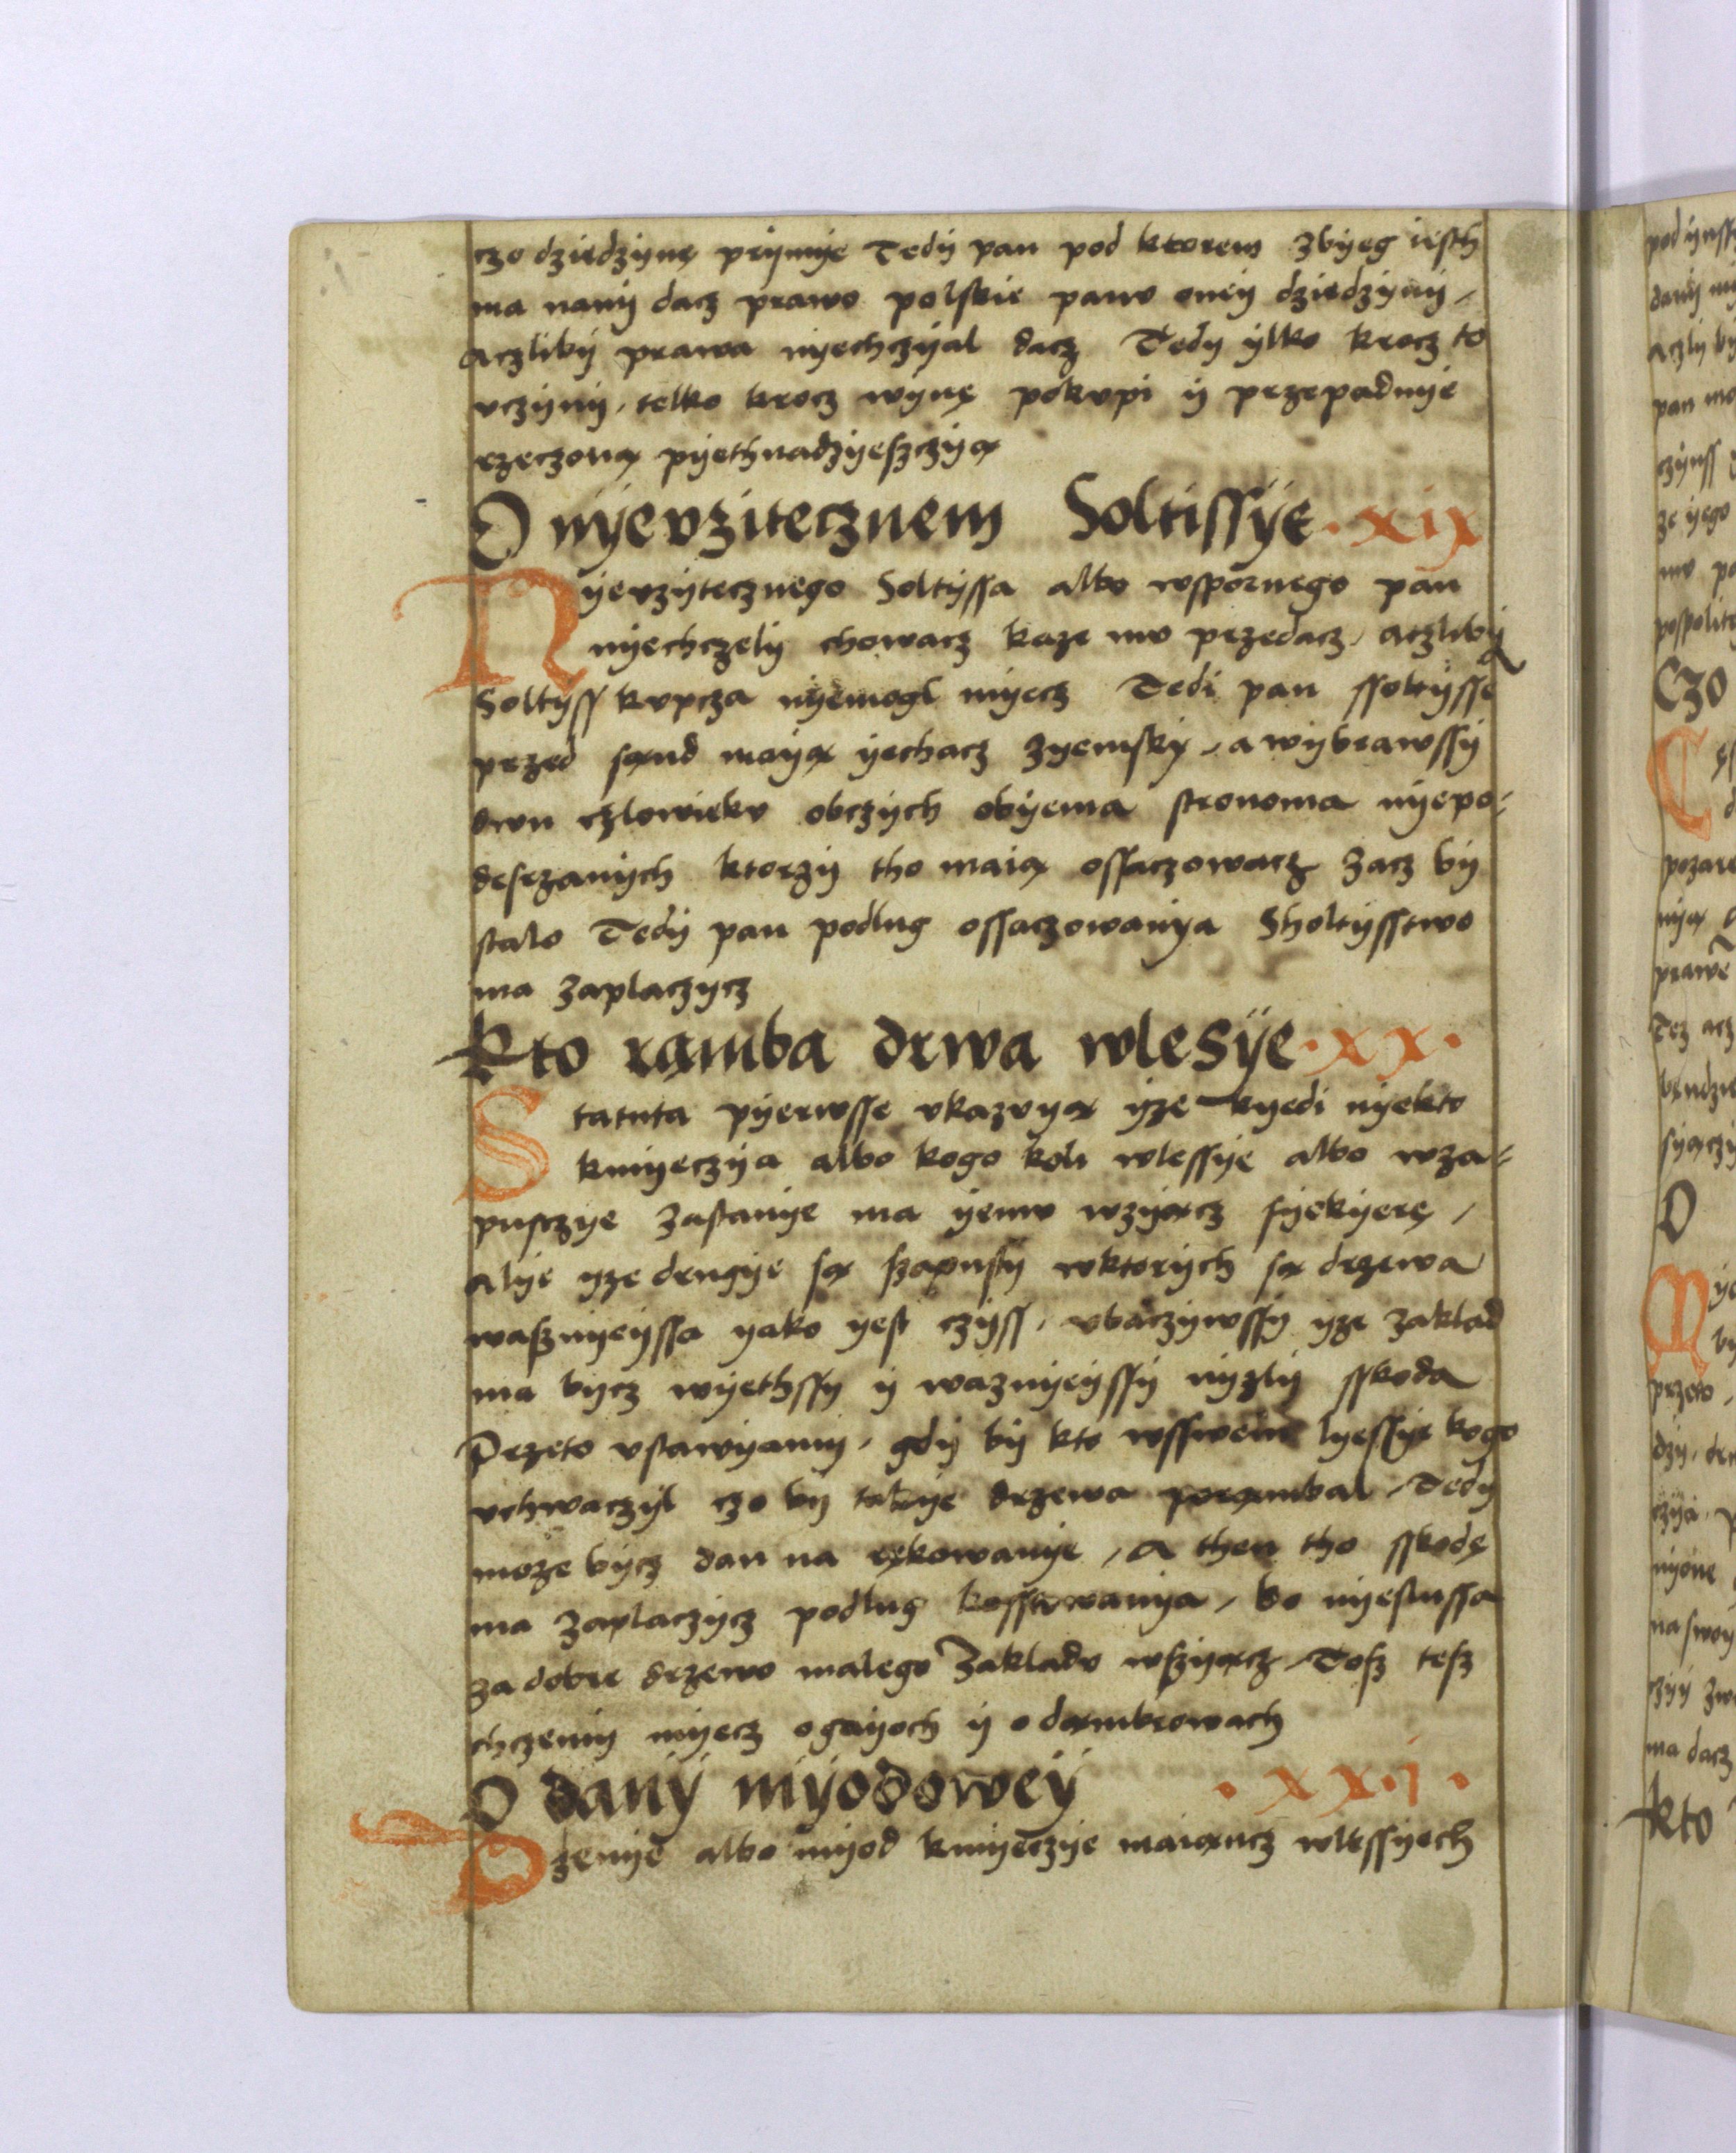 czo dziedzÿnę prÿmÿe Tedÿ pan pod ktorem zbÿeg iesth
ma nanÿ dacz prawo polskie panv oneÿ dziedzÿnÿ /
aczlibÿ prawa nÿechczÿal dacz Tedy ÿlko krocz to
vczÿnÿ / telko krocz wÿnę pokvpi ÿ przepadnÿe
rzeczoną pÿethnadzÿesczÿą
O nÿevzitecznem Soltissÿe · xix
Nÿevzÿtecznego Soltÿssa albo wspornego pan
nÿechczelÿ chowacz kaze mv przedacz / aczlibÿ
Soltÿss kvpcza nÿemogl mÿecz Tedi pan ssoltÿssę
przed sąnd moÿą ÿechacz zÿemskÿ / a wÿbrawssÿ
dwu czlowiekv obczÿch obÿema stronoma nÿepo-
desrzanÿch ktorzÿ tho maią ossaczowacz zacz bÿ
stalo Tedÿ pan podlug ossaczowanÿa Sholtÿsstwo
ma zaplaczÿcz
Kto rąmba drwa wlesÿe · xx ·
Statuta pÿerwsse vkazvÿą ÿze kÿedi nÿekto
kmÿeczÿa albo kogo koli wlessÿe albo wza-
pusczÿe zastanÿe ma ÿemv wzÿącz sÿekÿerę /
alÿe ÿze drugÿe są szapustÿ wktorÿch są drzewa
waßnÿeÿssa ÿako ÿest czÿss / vbaczÿwssÿ ÿze zaklad
ma bÿcz wÿethssÿ ÿ waznÿeÿssÿ nÿzlÿ sskoda
Przeto vstawÿamÿ / gdÿ bÿ kto wsswem lÿessÿe kogo
vchwaczÿl czo bÿ takÿe drzewa porąmbal / Tedÿ
moze bÿcz dan na rękowanÿe / a then tho sskodę
ma zaplaczÿcz podlug kosstowanÿa / bo nÿeslussa
za dobre drzewo malego zakladv wßÿącz / Toß teß
chczemÿ mÿecz ogaÿoch ÿ o dąmbrowach
O danÿ mÿodoweÿ · xx·i ·
Dzenÿe albo mÿod kmÿeczÿe maiąncz wlessÿech